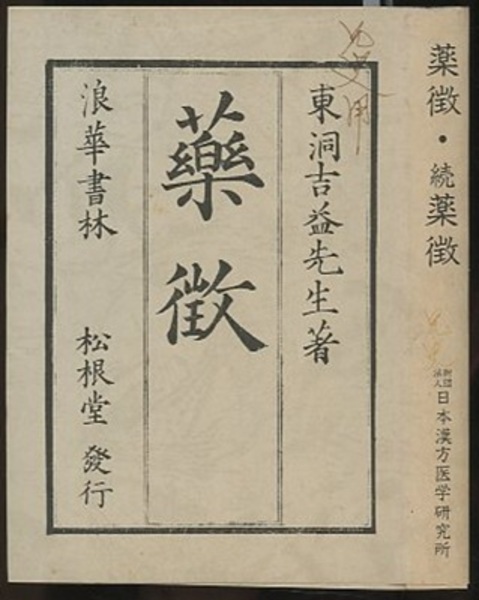 東洞吉益先生著
藥徵
浪華書林 松根堂 發行
薬徴・続薬徴
財団法人 日本漢方医学研究所